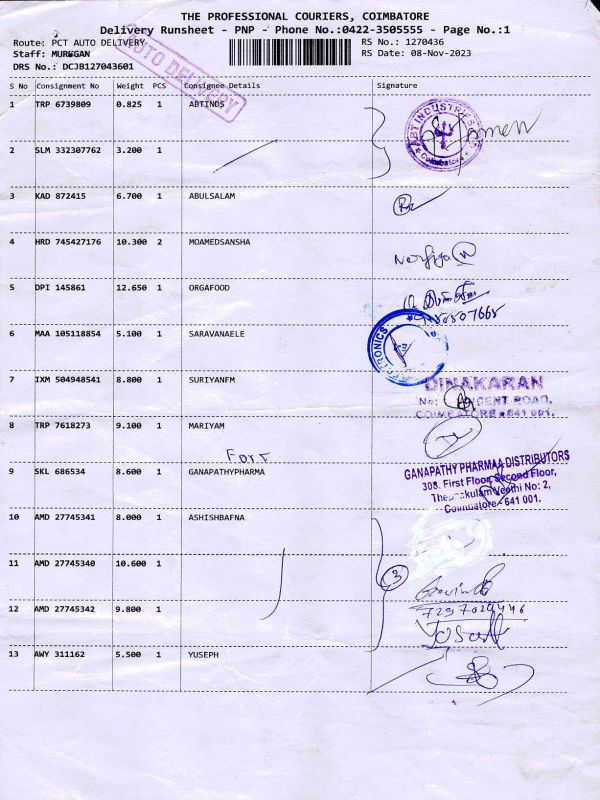 THE PROFESSIONAL COURIERS, COIMBATORE
Delivery Runsheet - PNP - Phone No.:0422-3505555 - Page No.:1
Route: PCT AUTO DELIVERY RS No.: 1270436
Staff: MURUGAN RS Date: 08-Nov-2023
DRS No.: DCJB127043601
AUTO DELIVERY
S No Consignment No Weight PCS Consignee Details Signature
1 TRP 6739809 0.825 1 ABTINDS
ABT INDUSTRIES
Coimbatore
2 SLM 332307762 3.200 1
3 KAD 872415 6.700 1 ABULSALAM
4 HRD 745427176 10.300 2 MOAMEDSANSHA
5 DPI 145861 12.650 1 ORGAFOOD
6 MAA 105118854 5.100 1 SARAVANAELE
7 IXM 504948541 8.800 1 SURIYANFM
DINAKARAN
No:
COIMBATORE - 641 001.
8 TRP 7618273 9.100 1 MARIYAM
9 SKL 686534 8.600 1 GANAPATHYPHARMA
GANAPATHY PHARMAA DISTRIBUTORS
308, First Floor, Second Floor,
No: 2,
Coimbatore - 641 001.
10 AMD 27745341 8.000 1 ASHISHBAFNA
11 AMD 27745340 10.600 1
3
12 AMD 27745342 9.800 1
7297020446
13 AWY 311162 5.500 1 YUSEPH